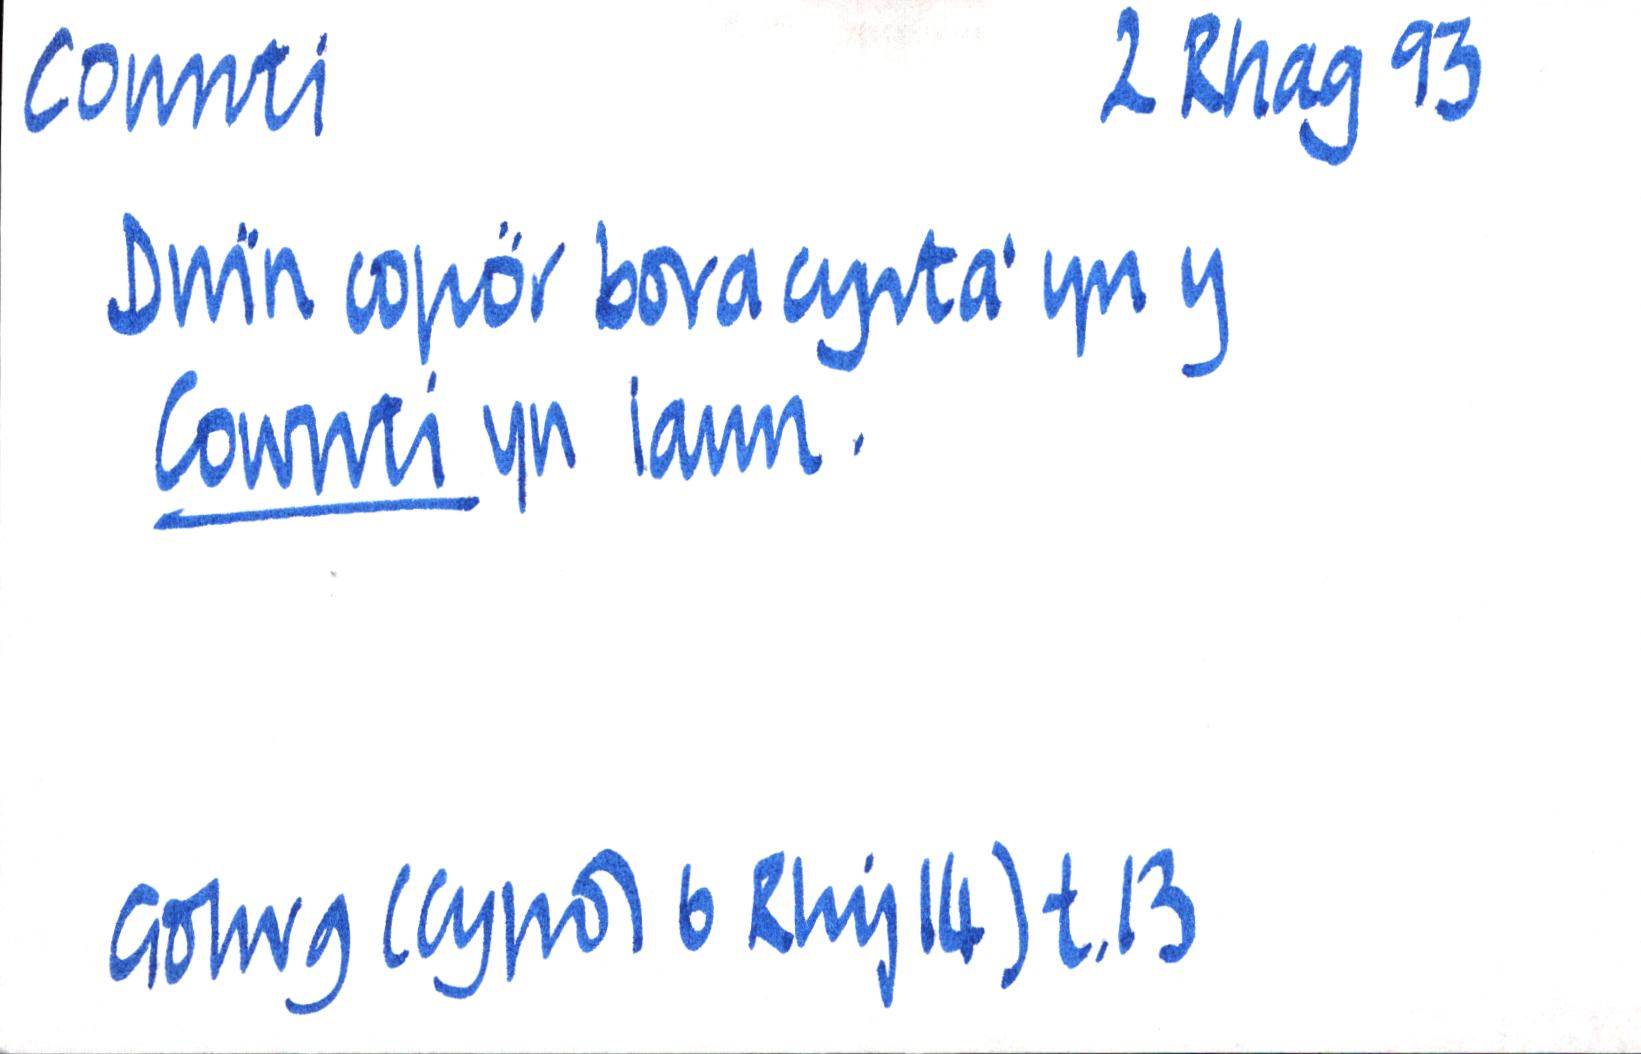 Cownti 2 Rhag 93
Dwi'n cofio'r bora cynta' yn y
Cownti yn iawn.
Golwg (Cyfrol 6 Rhif 14) t.13